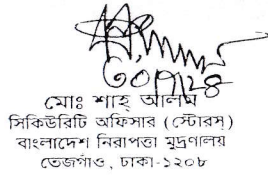 মোঃ শাহ্ আলম
সিকিউরিটি অফিসার (স্টোরস্)
বাংলাদেশ নিরাপত্তা মুদ্রণালয়
তেজগাঁও, ঢাকা-১২০৮